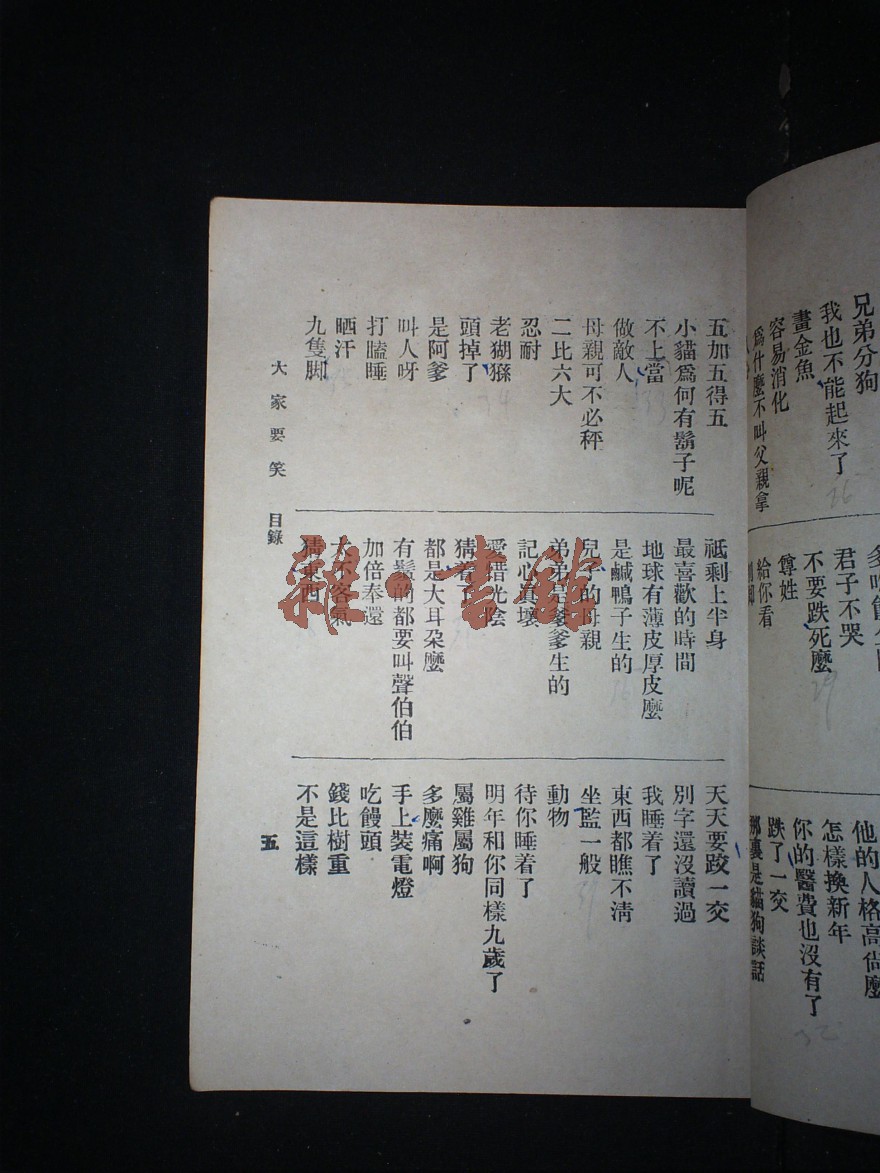 兄弟分狗
我也不能起來了
畫金魚
容易消化
爲什麼不叫父親拿
君子不哭
不要跌死麼
尊姓
給你看
他的人格高尙麼
怎樣換新年
你的醫費也沒有了
跌了一交
那裏是貓狗談話
五加五得五
小貓爲何有鬍子呢
不上當
做敵人
母親可不必秤
二比六大
忍耐
老猢猻
頭掉了
是阿爹
叫人呀
打瞌睡
晒汗
九隻脚
祗剩上半身
最喜歡的時間
地球有薄皮厚皮麼
是鹹鴨子生的
兒子的母親
弟弟是爹爹生的
記心眞壞
愛惜光陰
猜着了
都是大耳朶麼
有鬍的都要叫聲伯伯
加倍奉還
太不客氣
猜東西
天天要跤一交
別字還沒讀過
我睡着了
東西都瞧不淸
坐監一般
動物
待你睡着了
明年和你同樣九歲了
屬雞屬狗
多麼痛啊
手上裝電燈
吃饅頭
錢比樹重
不是這樣
大家要笑 目錄
五
雜·書館